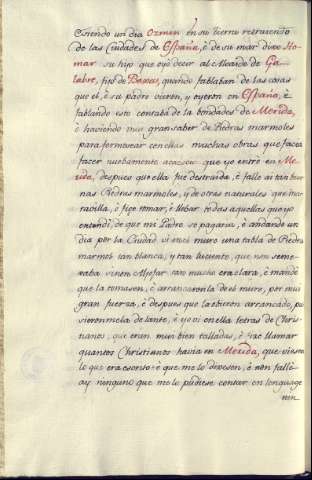 Seiendo un dia Ozmin en su tierra retraiendo
de las Ciudades de España, è de su mar dixo Ho-
mar su hijo que oyó decir al Alcaide de Ga-
labre, fijo de Baxas, quando fablaban de las cosas
que el, è su padre vieron, y oyeron en España, è
fablando esto contaba de la bondades de Merida,
è haviendo mui gran saber de Piedras marmoles
para fermosear con ellas muchas obras que facia
facer nuebamente acaeció que yo entré en Me-
rida, despues que ella fue destruida, è fallé ai tan bue-
nas Piedras marmoles, y de otras naturales que mar-
avilla, è fice tomar, è llebar todas aquellas que yo
entendí, de que mi Padre se pagaria, è andando un
dia por la Ciudad vi en el muro una tabla de Piedra
marmol tan blanca, y tan luciente, que non seme-
xaba sinon Aljofar tan mucho era clara, è mandé
que la tomasen, è arrancaronla de el muro, por mui
gran fuerza, è despues que la obieron arrancado, pu-
sieronmela delante, è yo vi en ella letras de Chris-
tianos, que eran mui bien talladas, è fice llamar
quantos Christianos havia en Merida, que viesen
lo que era escrito è que me lo dixesen, è non fallé
ay ninguno que me lo pudiese contar en lenguage
nin